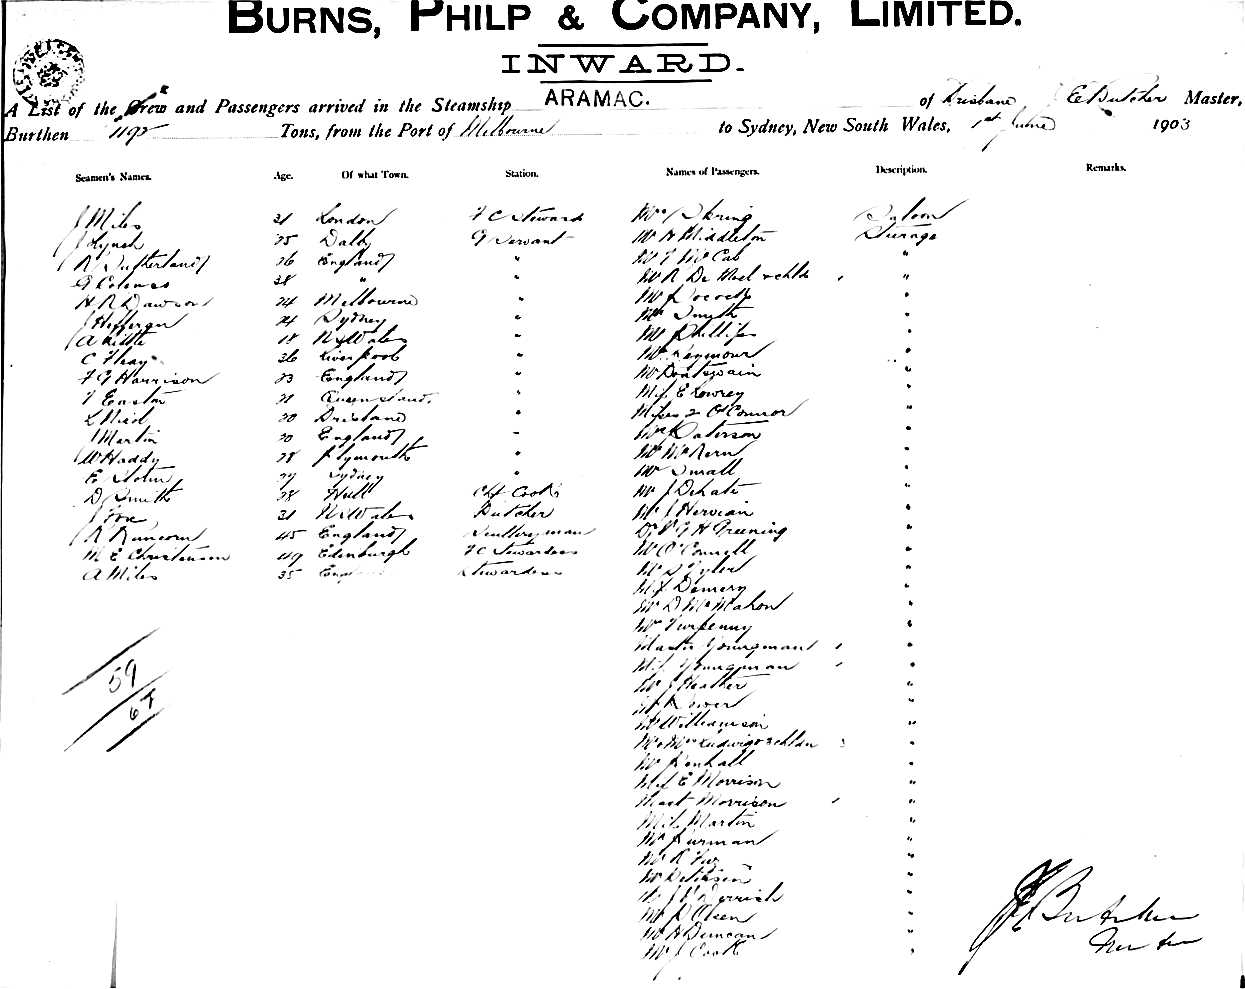 BURNS, PHILP & COMPANY, LIMITED.
INWARD.
A List of the Crew and Passengers arrived in the Steamship ARAMAC. of Brisbane, E Butcher Master,
Burthen Tons, from the Port of Melbourne to Sydney, New South Wales, 1st June 1903
Seamen's Names. Age. Of what Town. Station. Names of Passengers. Description. Remarks.
J Miles 21 London F C Steward Saloon
J Lynch 25 Dalby G Servant Mr H Middleton Steerage
R Sutherland 26 England " "
G 28 " " Mr R De & chld "
H R Dawson 24 Melbourne " Mr J Pocock "
J Heffergen 24 Sydney " Mr Smith "
A Kittle 18 N S Wales " Mr Phillips "
C Fleay 26 Liverpool " Mr Seymour "
F G Harrison 23 England " Mr Boatswain "
F Easton 21 Queensland " Miss E Lowrey "
L Nied 20 Brisbane " Misses 2 O'Connor "
J Martin 20 England " Paterson "
W Haddy 28 Plymouth " "
E 27 Sydney " Mr Small "
D Smith 28 Hull Chf Cook "
J Fox 31 N S Wales Butcher "
R Runcorn 45 England Sculleryman Greening "
M E Christensen 49 Edinburgh F C Stewardess Mr O'Connell "
A Miles 35 England Stewardess Mr S Tyler "
Demery "
Mr D McMahon "
Mr Twopenny "
59 Master Youngman "
Miss Youngman "
67 Mr J Heather "
"
Williamson "
Mr & Mrs Ludwig & chldn "
Mr "
Miss E Morrison "
Mast Morrison "
Miss Martin "
"
"
"
"
Mr P Olsen "
Mr H Duncan "
Mr J Cook "
J E Butcher
Master